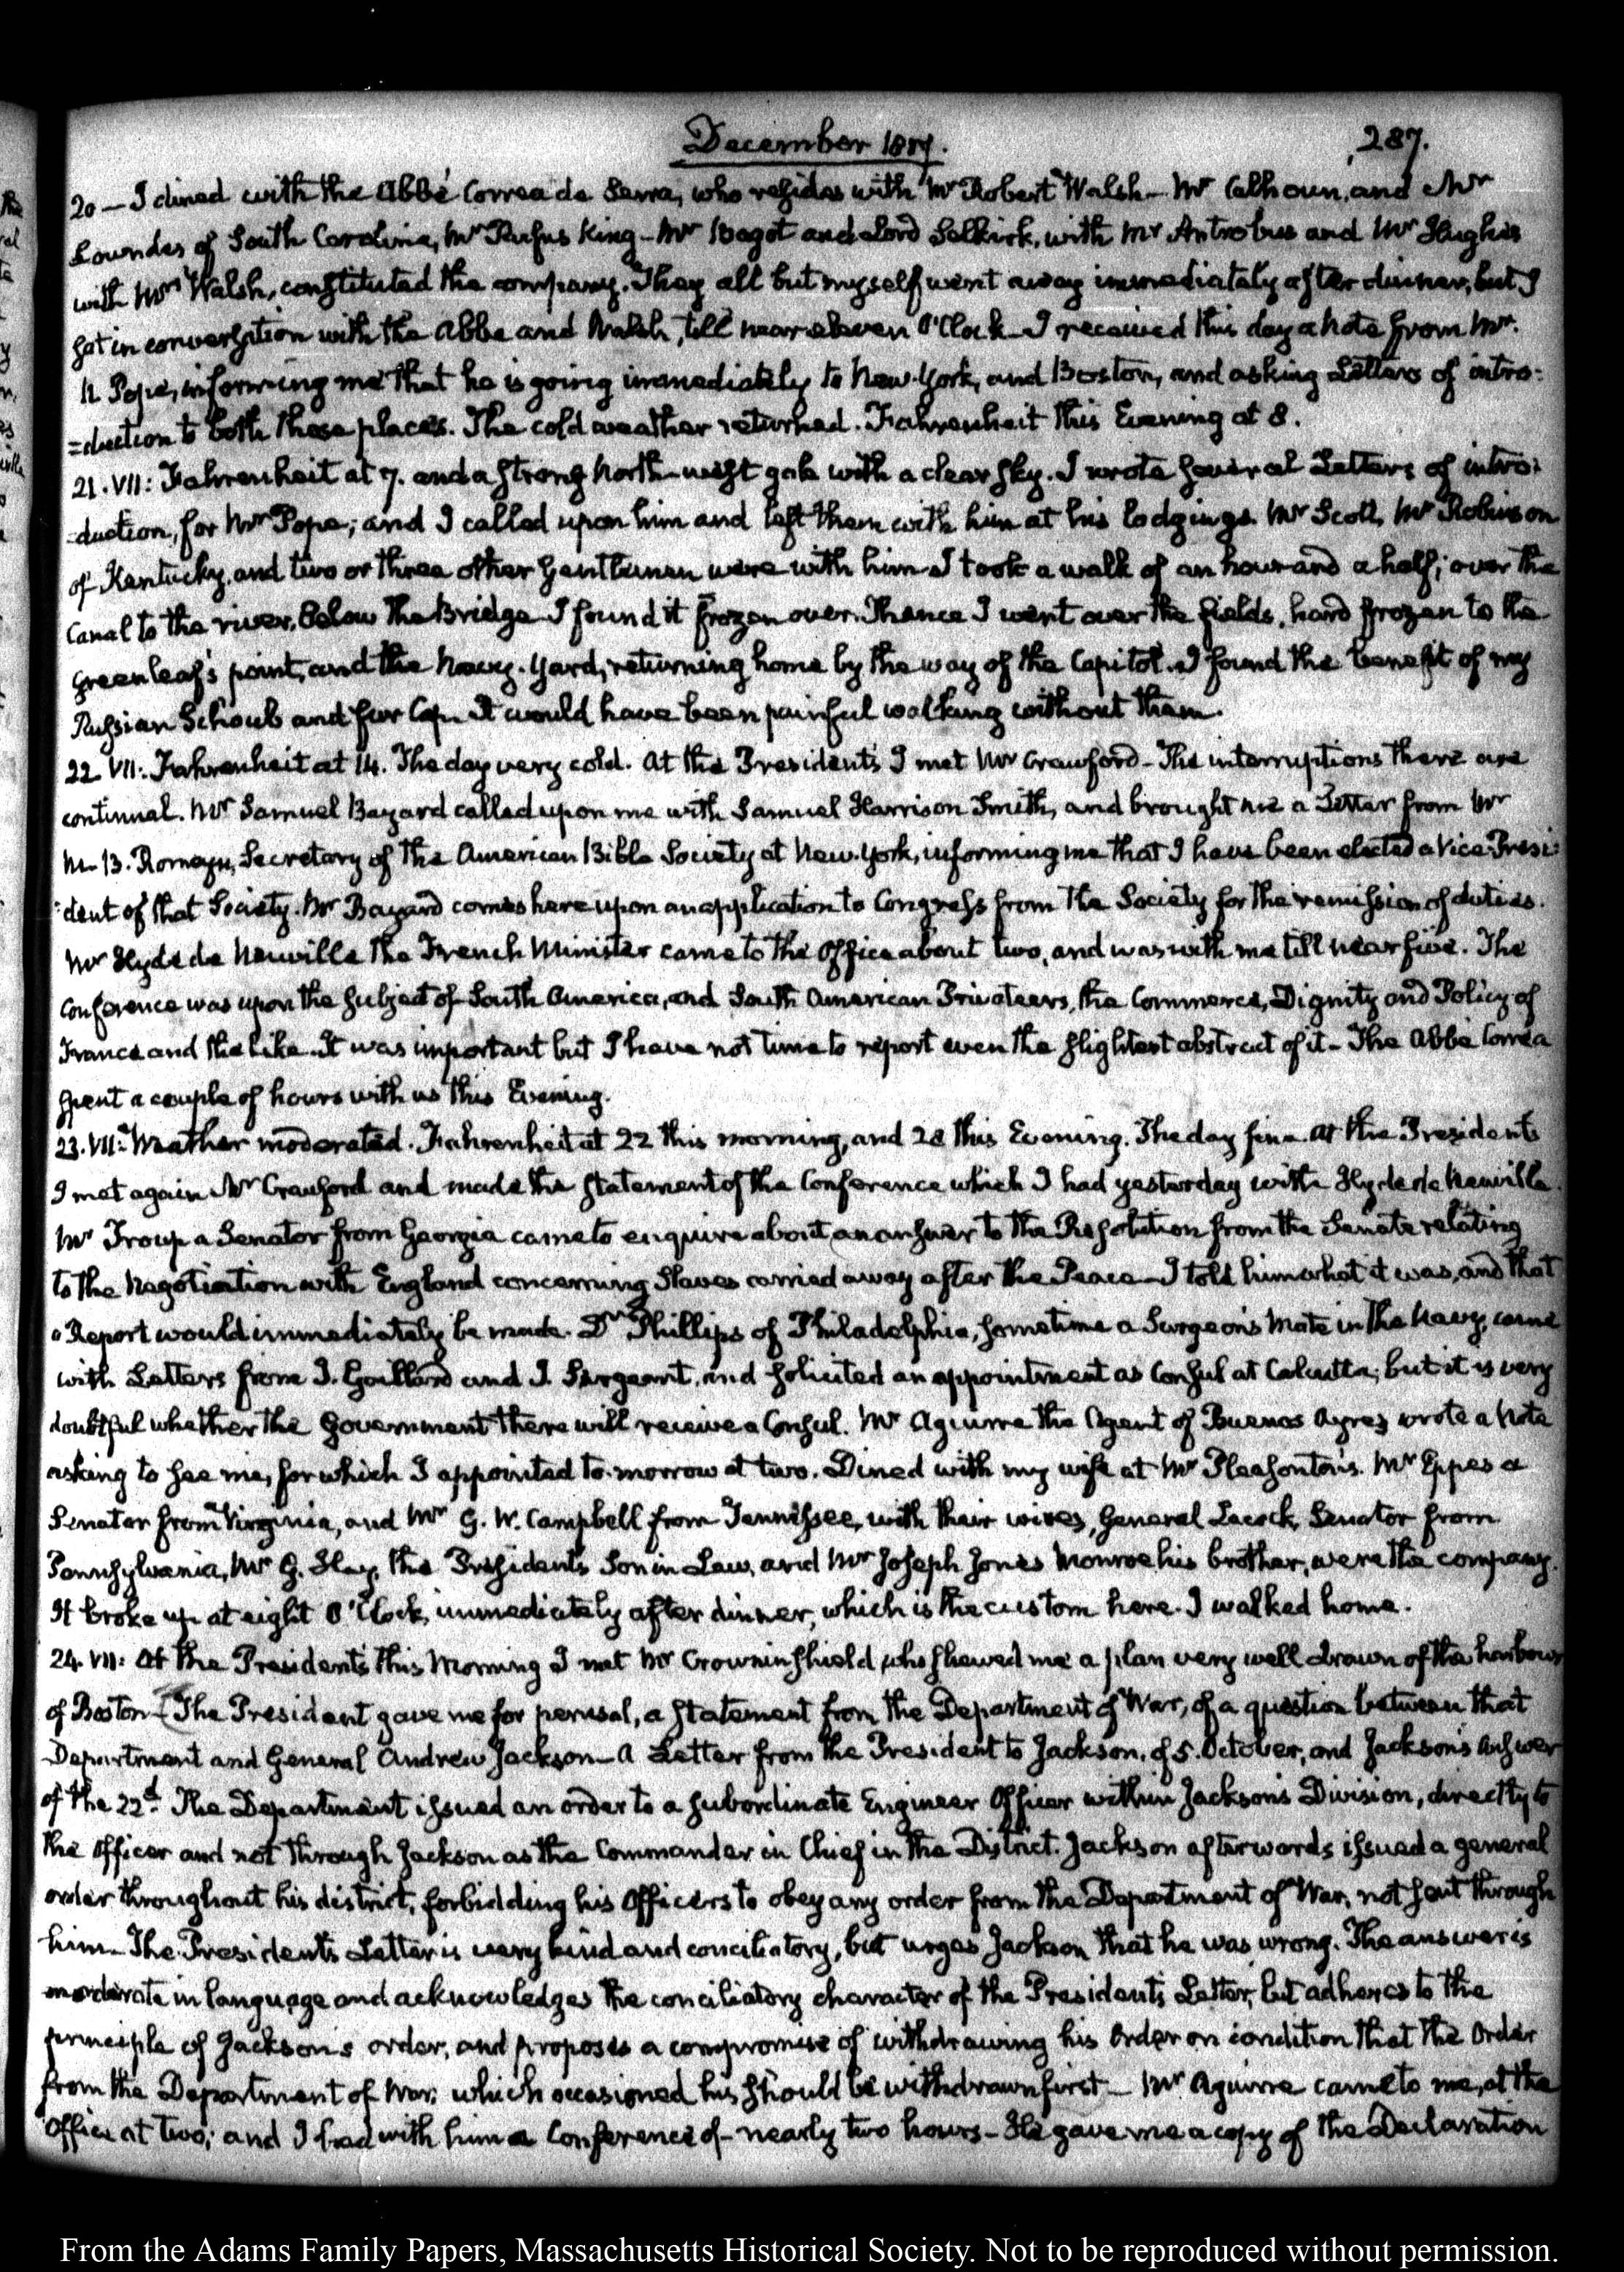 December 1817.
287.
20 — I dined with the Abbé Correa de Serra, who resides with Mr Robert Walsh — Mr Calhoun, and Mr
Lowndes of South Carolina, Mr Rufus King — Mr Bagot and Lord Selkirk, with Mr Antrobus and Mr Hughes
with Mrs Walsh, constituted the company. They all but myself went away immediately after dinner; but I
sat in conversation with the Abbe and Walsh, till near eleven O'Clock — I received this day a Note from Mr
Pope, informing me that he is going immediately to New-York, and Boston, and asking Letters of intro=
=duction to both those places. The cold weather returned. Fahrenheit this Evening at 8.
21. VII: Fahrenheit at 7. and a strong North-west gale with a clear sky. I wrote several Letters of intro=
=duction, for Mr Pope; and I called upon him and left them with him at his lodgings. Mr Scott, Mr Robinson
of Kentucky, and two or three other Gentlemen were with him — I took a walk of an hour and a half; over the
Canal to the river, below the Bridge — I found it frozen over. Thence I went over the fields, hard frozen to the
Greenleaf's point, and the Navy-Yard, returning home by the way of the Capitol. I found the benefit of my
Russian Schoub and fur Cap. It would have been painful walking without them.
22. VII: Fahrenheit at 14. The day very cold. At the President's I met Mr Crawford — The interruptions there are
continual. Mr Samuel Bayard called upon me with Samuel Harrison Smith, and brought me a Letter from Mr
B. Romeyn, Secretary of the American Bible Society at New-York, informing me that I have been elected a Vice-Presi=
=dent of that Society. Mr Bayard comes here upon an application to Congress from the Society for the remission of duties.
Mr Hyde de Neuville the French Minister came to the Office about two, and was with me till near five. The
Conference was upon the subject of South America, and South American Privateers, the Commerce, Dignity and Policy of
France and the like. It was important but I have not time to report even the slightest abstract of it — The Abbé Correa
spent a couple of hours with us this Evening.
23. VII: Weather moderated. Fahrenheit at 22 this morning, and 28 this Evening. The day fine. At the President's
I met again Mr Crawford and made the statement of the Conference which I had yesterday with Hyde de Neuville.
Mr Troup a Senator from Georgia came to enquire about an answer to the Resolution from the Senate relating
to the Negotiation with England concerning Slaves carried away after the Peace — I told him what it was, and that
a Report would immediately be made. Dr Phillips of Philadelphia, sometime a Surgeon's Mate in the Navy, came
with Letters from J. Gaillard and J. Sergeant, and solicited an appointment as Consul at Calcutta; but it is very
doubtful whether the Government there will receive a Consul. Mr Aguirre the Agent of Buenos Ayres wrote a Note
asking to see me, for which I appointed to-morrow at two. Dined with my wife at Mr Pleasonton's. Mr Eppes a
Senator from Virginia, and Mr G. W. Campbell from Tennessee, with their wives, General Lacock, Senator from
Pennsylvania, Mr G. Hay, the President's Son in Law, and Mr Joseph Jones Monroe his brother, were the company.
It broke up at eight O'Clock, immediately after dinner, which is the custom here. I walked home.
24. VII: At the President's this Morning I met Mr Crowninshield who shewed me a plan very well drawn of the harbour
of Boston — The President gave me for perusal, a statement from the Department of War, of a question between that
Department and General Andrew Jackson — A Letter from the President to Jackson, of 5. October, and Jackson's answer
of the 22d. The Department issued an order to a subordinate Engineer Officer within Jackson's Division, directly to
the Officer and not through Jackson as the Commander in Chief in the District. Jackson afterwards issued a general
order throughout his district, forbidding his Officers to obey any order from the Department of War, not sent through
him — The President's Letter is very kind and conciliatory, but urges Jackson that he was wrong. The answer is
moderate in language and acknowledges the conciliatory character of the President's Letter, but adheres to the
principle of Jackson's order, and proposes a compromise of withdrawing his Order on condition that the Order
from the Department of War, which occasioned his should be withdrawn first — Mr Aguirre came to me, at the
Office at two; and I had with him a Conference of nearly two hours — He gave me a copy of the Declaration
From the Adams Family Papers, Massachusetts Historical Society. Not to be reproduced without permission.